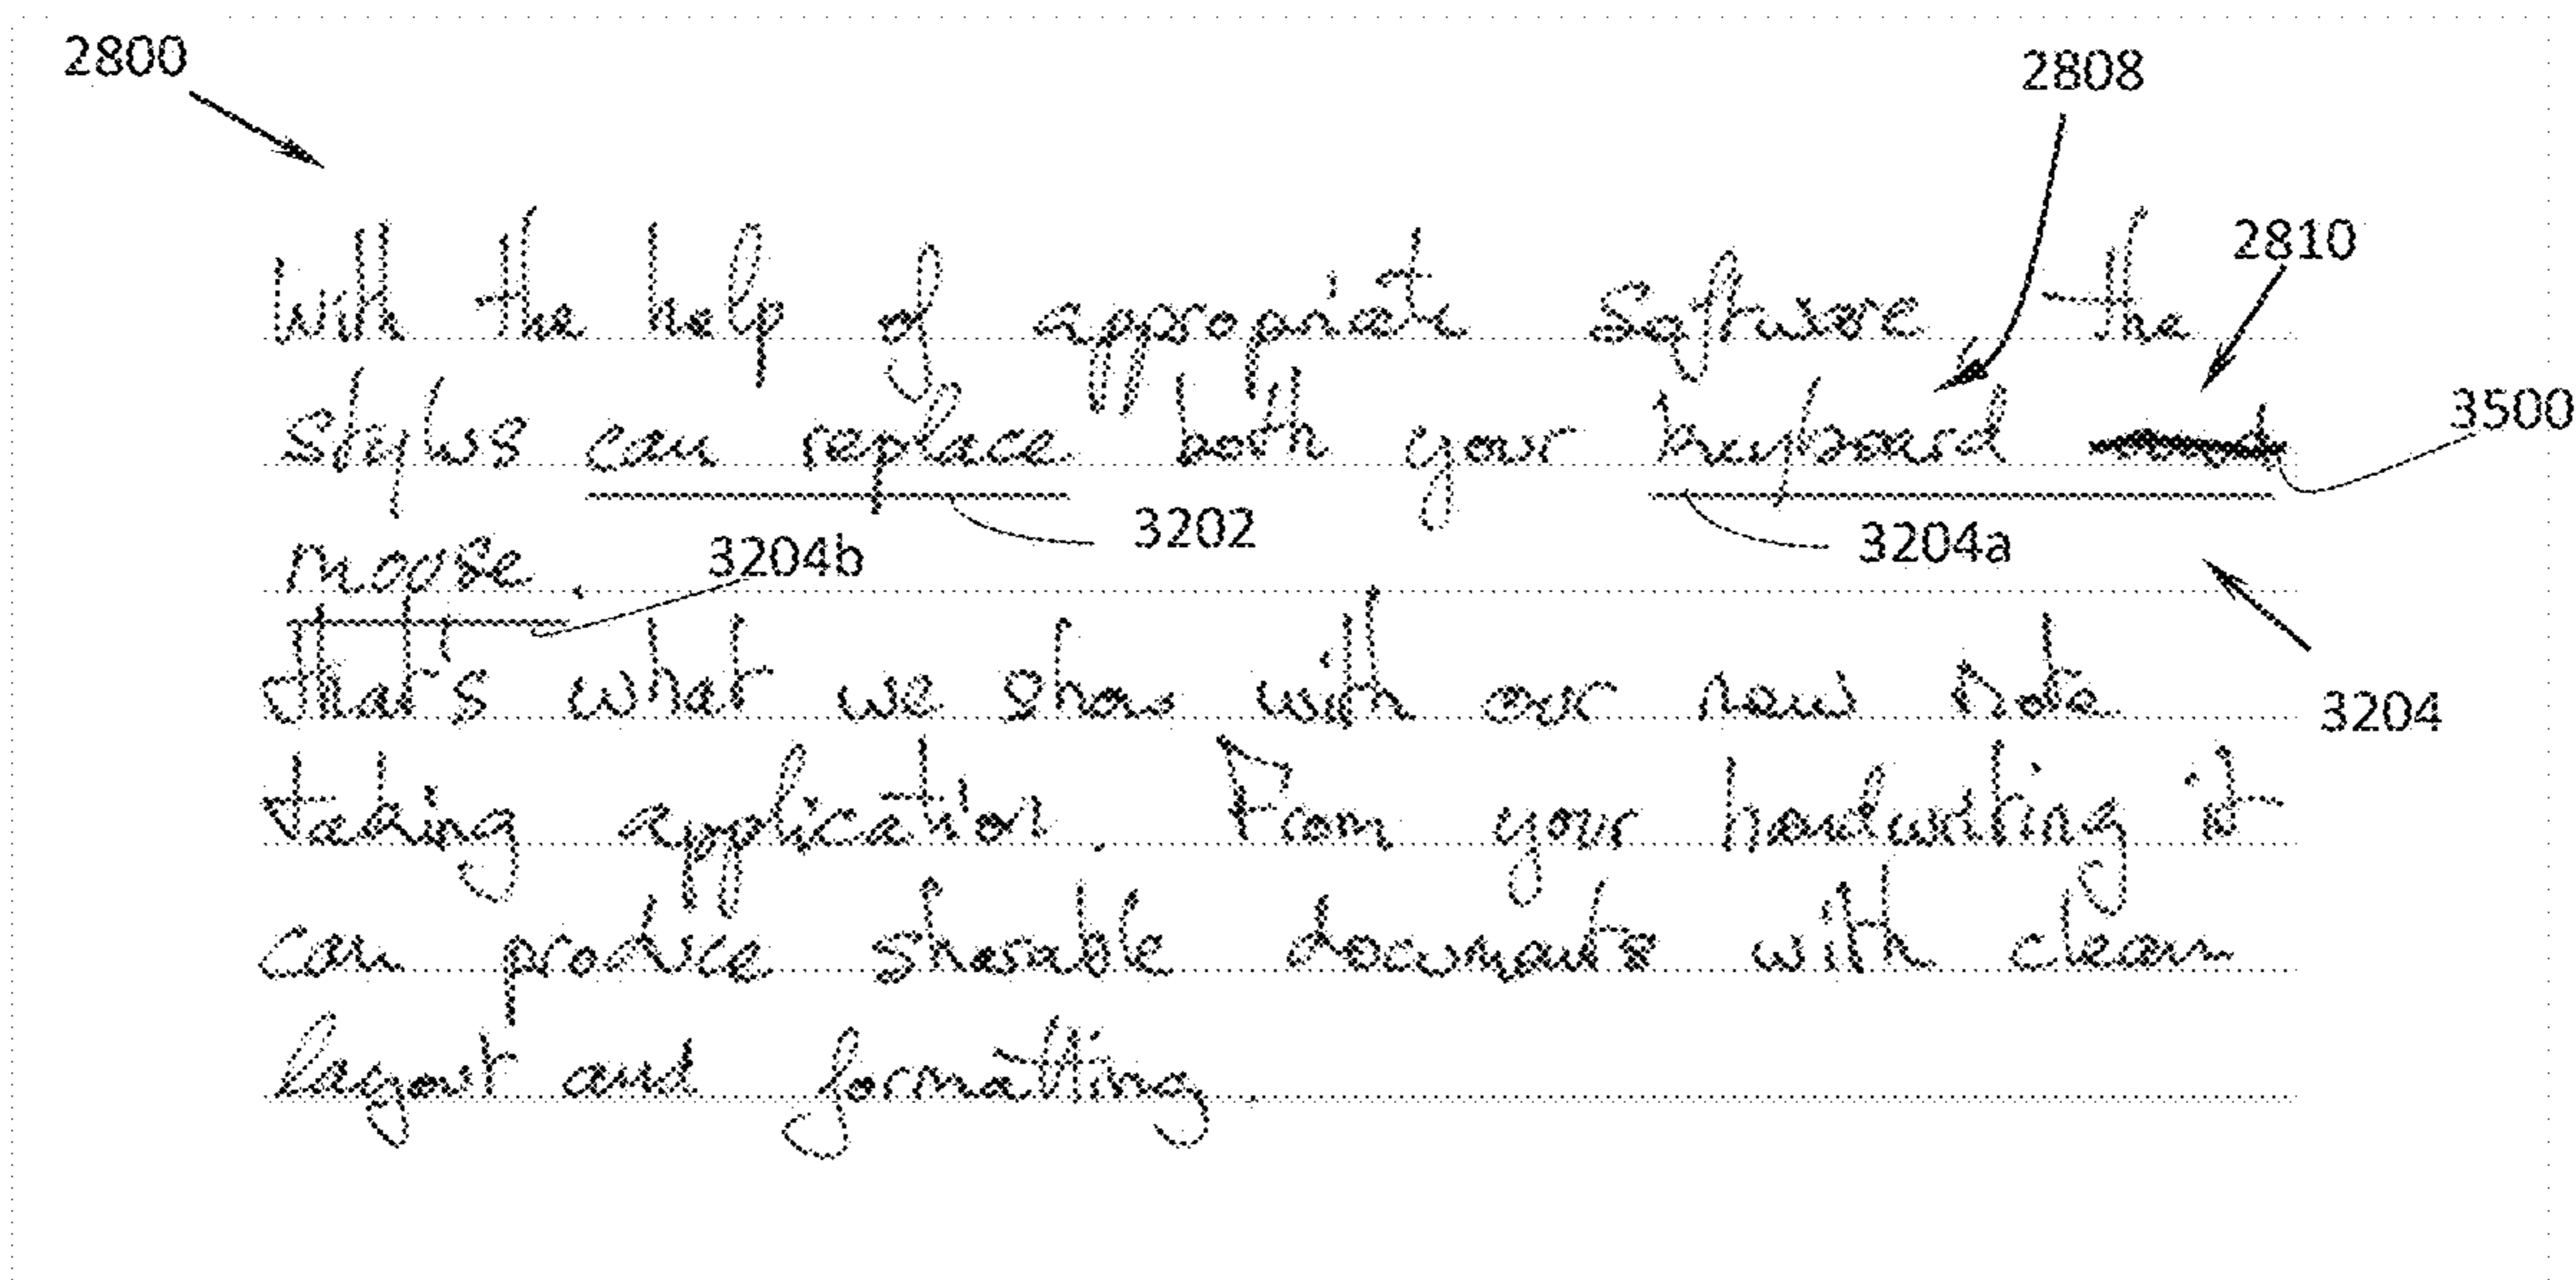 2800
2808
2810
With the help of appropriate Software the
stylus can replace both your keyboard and
3500
3202
3204a
mouse.
3204b
that's what we show with our new note
3204
taking application. From your handwriting it
can produce sharable documents with clean
layout and formatting.